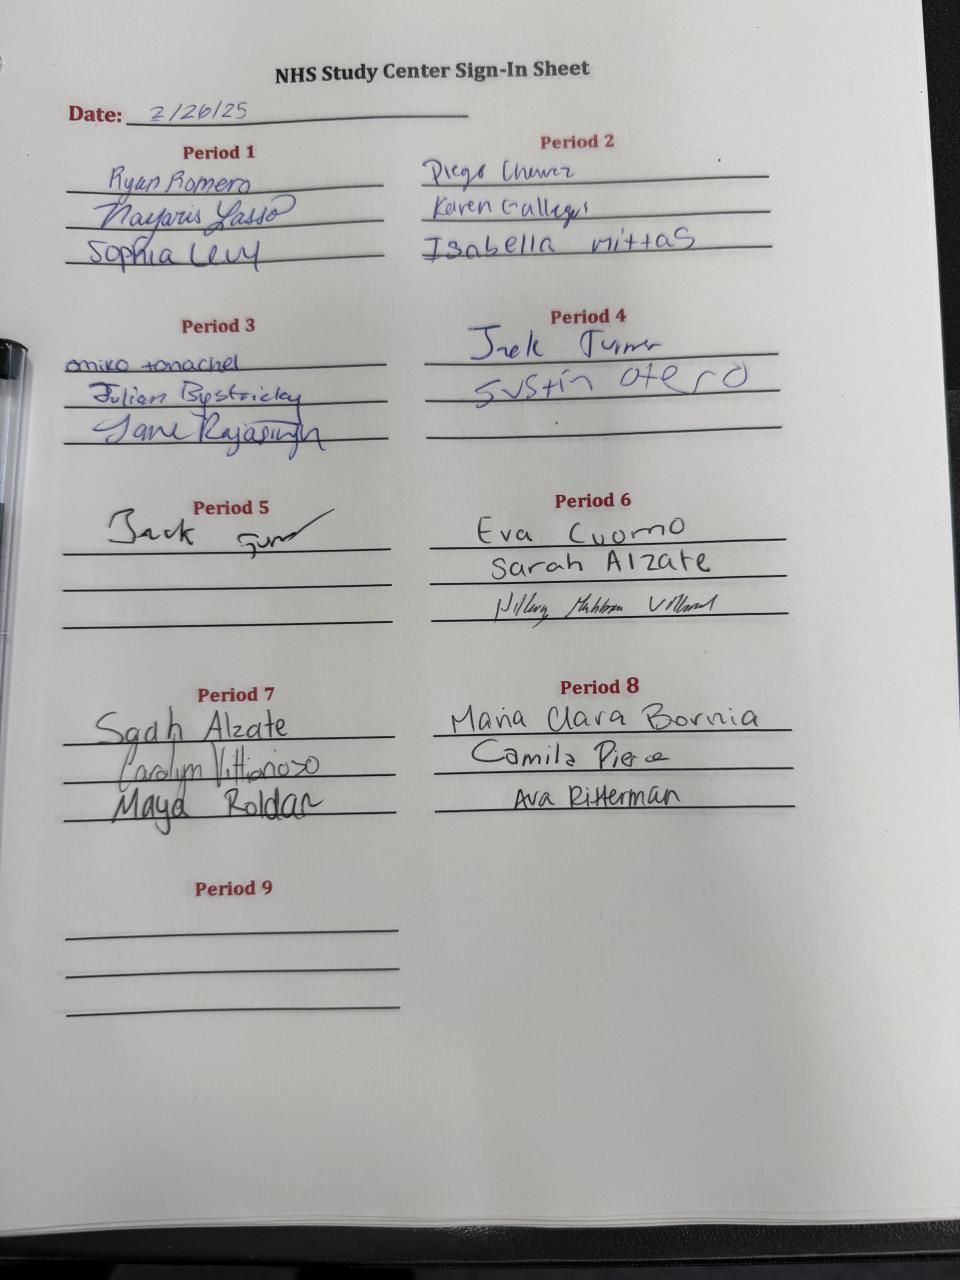 NHS Study Center Sign-In Sheet
Date: 2/26/25
Period 1
Ryan Romero
Nayaris Lasso
Sophia Levy
Period 2
Diego
Karen Gallegos
Isabella mittas
Period 3
omiko tonachel
Julian Bystricky
Rajasingh
Period 4
Jack Turner
Justin otero
Period 5
Jack
Period 6
Eva Cuomo
Sarah Alzate
Hillary
Period 7
Alzate
Carolyn
Maya Roldan
Period 8
Maria Clara Bornia
Camila Pierce
Ava Ritterman
Period 9